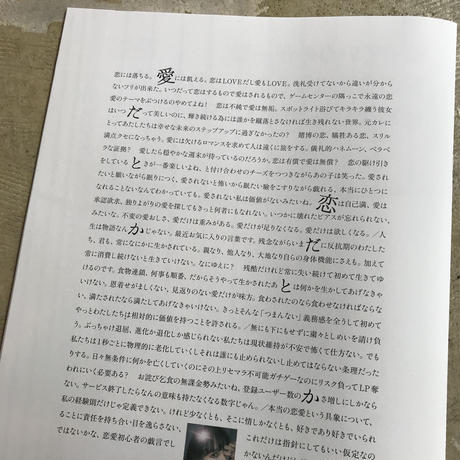 恋には落ちる。愛には飢える。恋はLOVEだし愛もLOVE。洗礼受けてないから違いが分から
ないフリが出来た。いつだって恋はするもので愛はされるもので、ゲームセンターの隅っこで永遠の恋
愛のテーマをぶつけるのやめてよね! 恋は不純で愛は無垢。スポットライト浴びてキラキラ纏り彼女
はいつだって美しいのに、輝き続ける為には誰かを蹴落とさなければ生き残れない世界。元カレに
とってあたしたちは幸せな未来のステップアップに過ぎなかったの? 賭博の恋、犠牲ある恋、スリル
満点クセになっちゃう。愛には欠けるロマンスを求めて人は遠くに旅をする。儀礼的ハネムーン、ペラペ
ラな証拠? 愛したら穏やかな週末が待っているのだろうか。恋は有償で愛は無償? 恋の駆け引き
をしているときが一番楽しいよね、と付け合わせのチーズをつつきながらあの子は笑った。愛され
たいと願いながら眠りにつく、愛されないと怖いから眠たい瞼をこすりながら戯れる。本当にひとつに
なれることないなんてわかっていても。愛されない私は価値がないみたいね。恋は自己満、愛は
承認欲求、独りよがりの愛を探してもきっと何者にもなれない。いつかに壊れたピアスが忘れられない、
みたいな。不変の愛おしさ、愛だけは重みがある。愛だけが足りなくなる。愛だけは欲しくなる。/人
生は物語なんかじゃない。最近お気に入りの言葉です。残念ながらいまだに反抗期のわたした
ち、君も、常になにかに生かされている。親なり、他人なり、大地なり自らの身体機能にさえも。加えて
常に消費し続けないと生きていけない。なにゆえに? 残酷だけれど常に失い続けて初めて生きてゆ
けるのです。食物連鎖、何事も順番、だからそうやって生かされたあとは何かを生かしてあげなきゃ
いけない。恩着せがましくない、見返りのない愛だけが味方。食わされたのなら食わせなければならな
い、満たされたなら満たしてあげなきゃいけない。きっとそんな「つまんない」義務感を全うして初めて
やっとわたしたちは相対的に価値を持つことを許される。/無にも下にもせずに粛々としめいを請け負
う。ぶっちゃけ退屈、進化か退化しか感じられない私たちは現状維持が不安で怖くて仕方ない。でも
私たちは1秒ごとに物理的に老化していくしそれは誰にも止められないし止めてはならない条理だった
りする。日々無条件に何かを亡くしていくのにその上リセマラ不可能ガチゲーなのにリスク負ってLP奪
われにいく必要ある? お詫び乞食の無課金勢みたいね、登録ユーザー数のかさ増しにしかなら
ない。サービス終了したらなんの意味も持たなくなる数字じゃん。/本当の恋愛という具象について、
私の経験則だけじゃ定義できない。けれど少なくとも、そこに情しかなくとも、好きであり好きでいられ
ることに責任を持ち合い目を逸らさない、
ではないかな、恋愛初心者の戯言でし
これだけは指針にしてもいい仮定なの